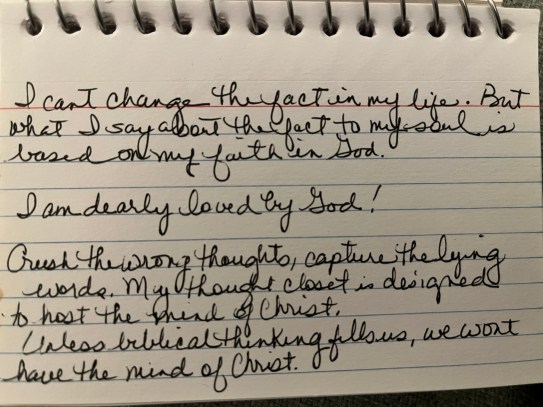 I can't change the fact in my life. But
what I say about the fact to my soul is
based on my faith in God.
I am dearly loved by God!
Crush the wrong thoughts, capture the lying
words. My thought closet is designed
to host the mind of Christ.
Unless biblical thinking fills us, we wont
have the mind of Christ.